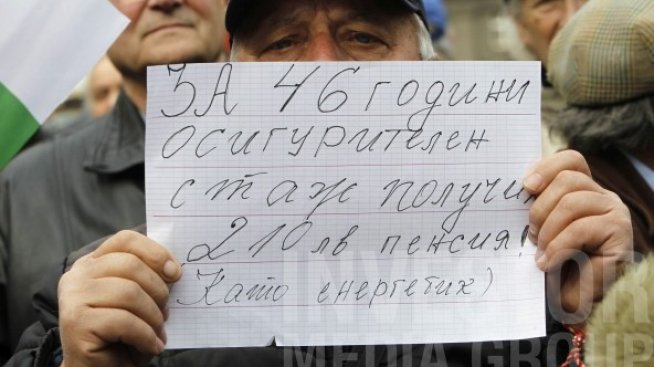 ЗА 46 години
осигурителен
стаж получих
210 лв пенсия!
Като енергетик)
INVESTOR
MEDIA GROUP